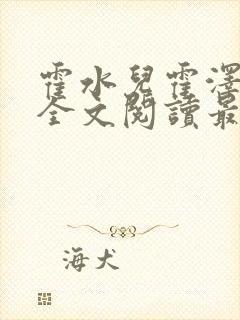 霍水兒霍澤
全文閱讀最
海犬